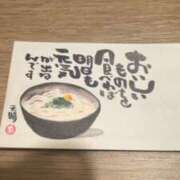 おいしい
ものを
食べれば
明日も
元気
が出る
んです